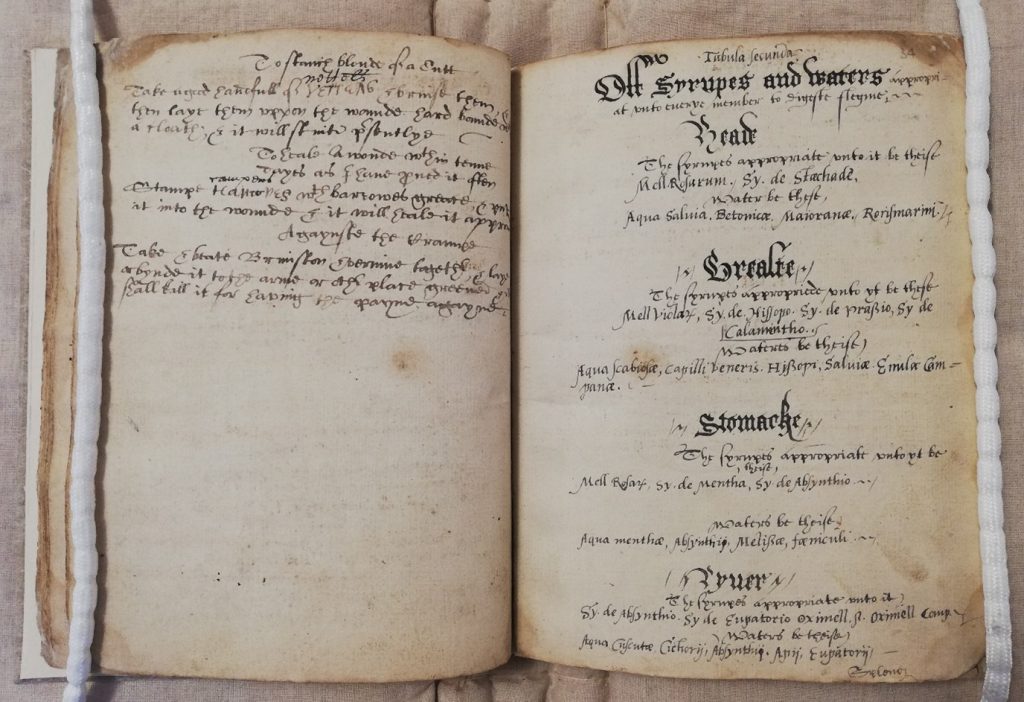 To stanch bloude of a Cutt
nettells
Take a good handfull of & bruise them
then laye them uppon the wounde hard bounde
a cloath, & it will stint it p'sentlye
To heale a wonde wthin tenne
Dayes as I have proved it often
campens
Stampe wth barrowes grease, & put
it into the wounde & it will heale it
Agaynste the Krampe
Take Brimston together, & laye
or bynde it to the arme or oth place greeved
shall kill it for having the payne agayne
Tabula secunda. 34
Off Syrupes and waters appropri-
at unto euerye member to digeste flegme,
Heade
The syrupes appropriate unto it be theise
Mell Rosarum, Sy. de Stæchade,
Water be these,
Aqua Salvia, Betonicæ, Maioranæ, Rorismarini.
Brealte
The syrupes appropriede unto yt be these
Mell Violar, Sy. de. Hissopo. Sy. de prassio, Sy de
Calamintho.
Waters be theise,
Aqua scabiosæ, Capilli veneris. Hissopi, Salviæ. Enulæ Cam-
panæ.
Stomacke
The syrupes appropriate unto yt be
theise,
Mell Rosar, Sy. de Mentha, Sy. de Absynthio.
Waters be theise,
Aqua menthæ, Absynthij, Melissæ, fœniculi.
Lyuer
The syrupes appropriate unto it,
Sy. de Absynthio. Sy de Eupatorio Oximell, Oximell Comp.
Waters be theise,
Aqua Cuscutæ, Cichorij, Absynthij. Apij, Eupatorij
Splene